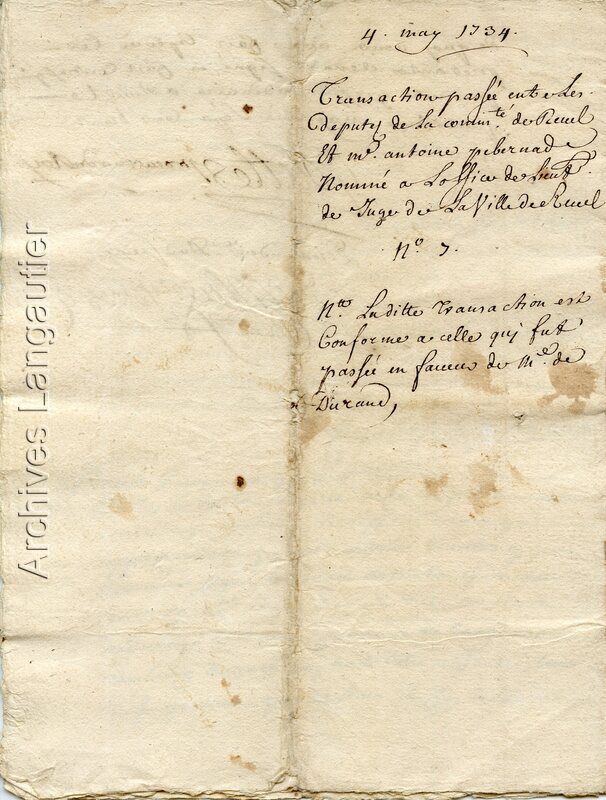 4. may 1734.
Transaction passée entre Les
deputez de La commté. de Revel
Et mr. antoine pebernad
Nommé a L'office de Lieut
de Juge de La Ville de Revel
No. 7.
Ntta Laditte transaction est
Conforme a celle quj fut
passée en faveur de Mr. de
Durand,
Archives Langautier